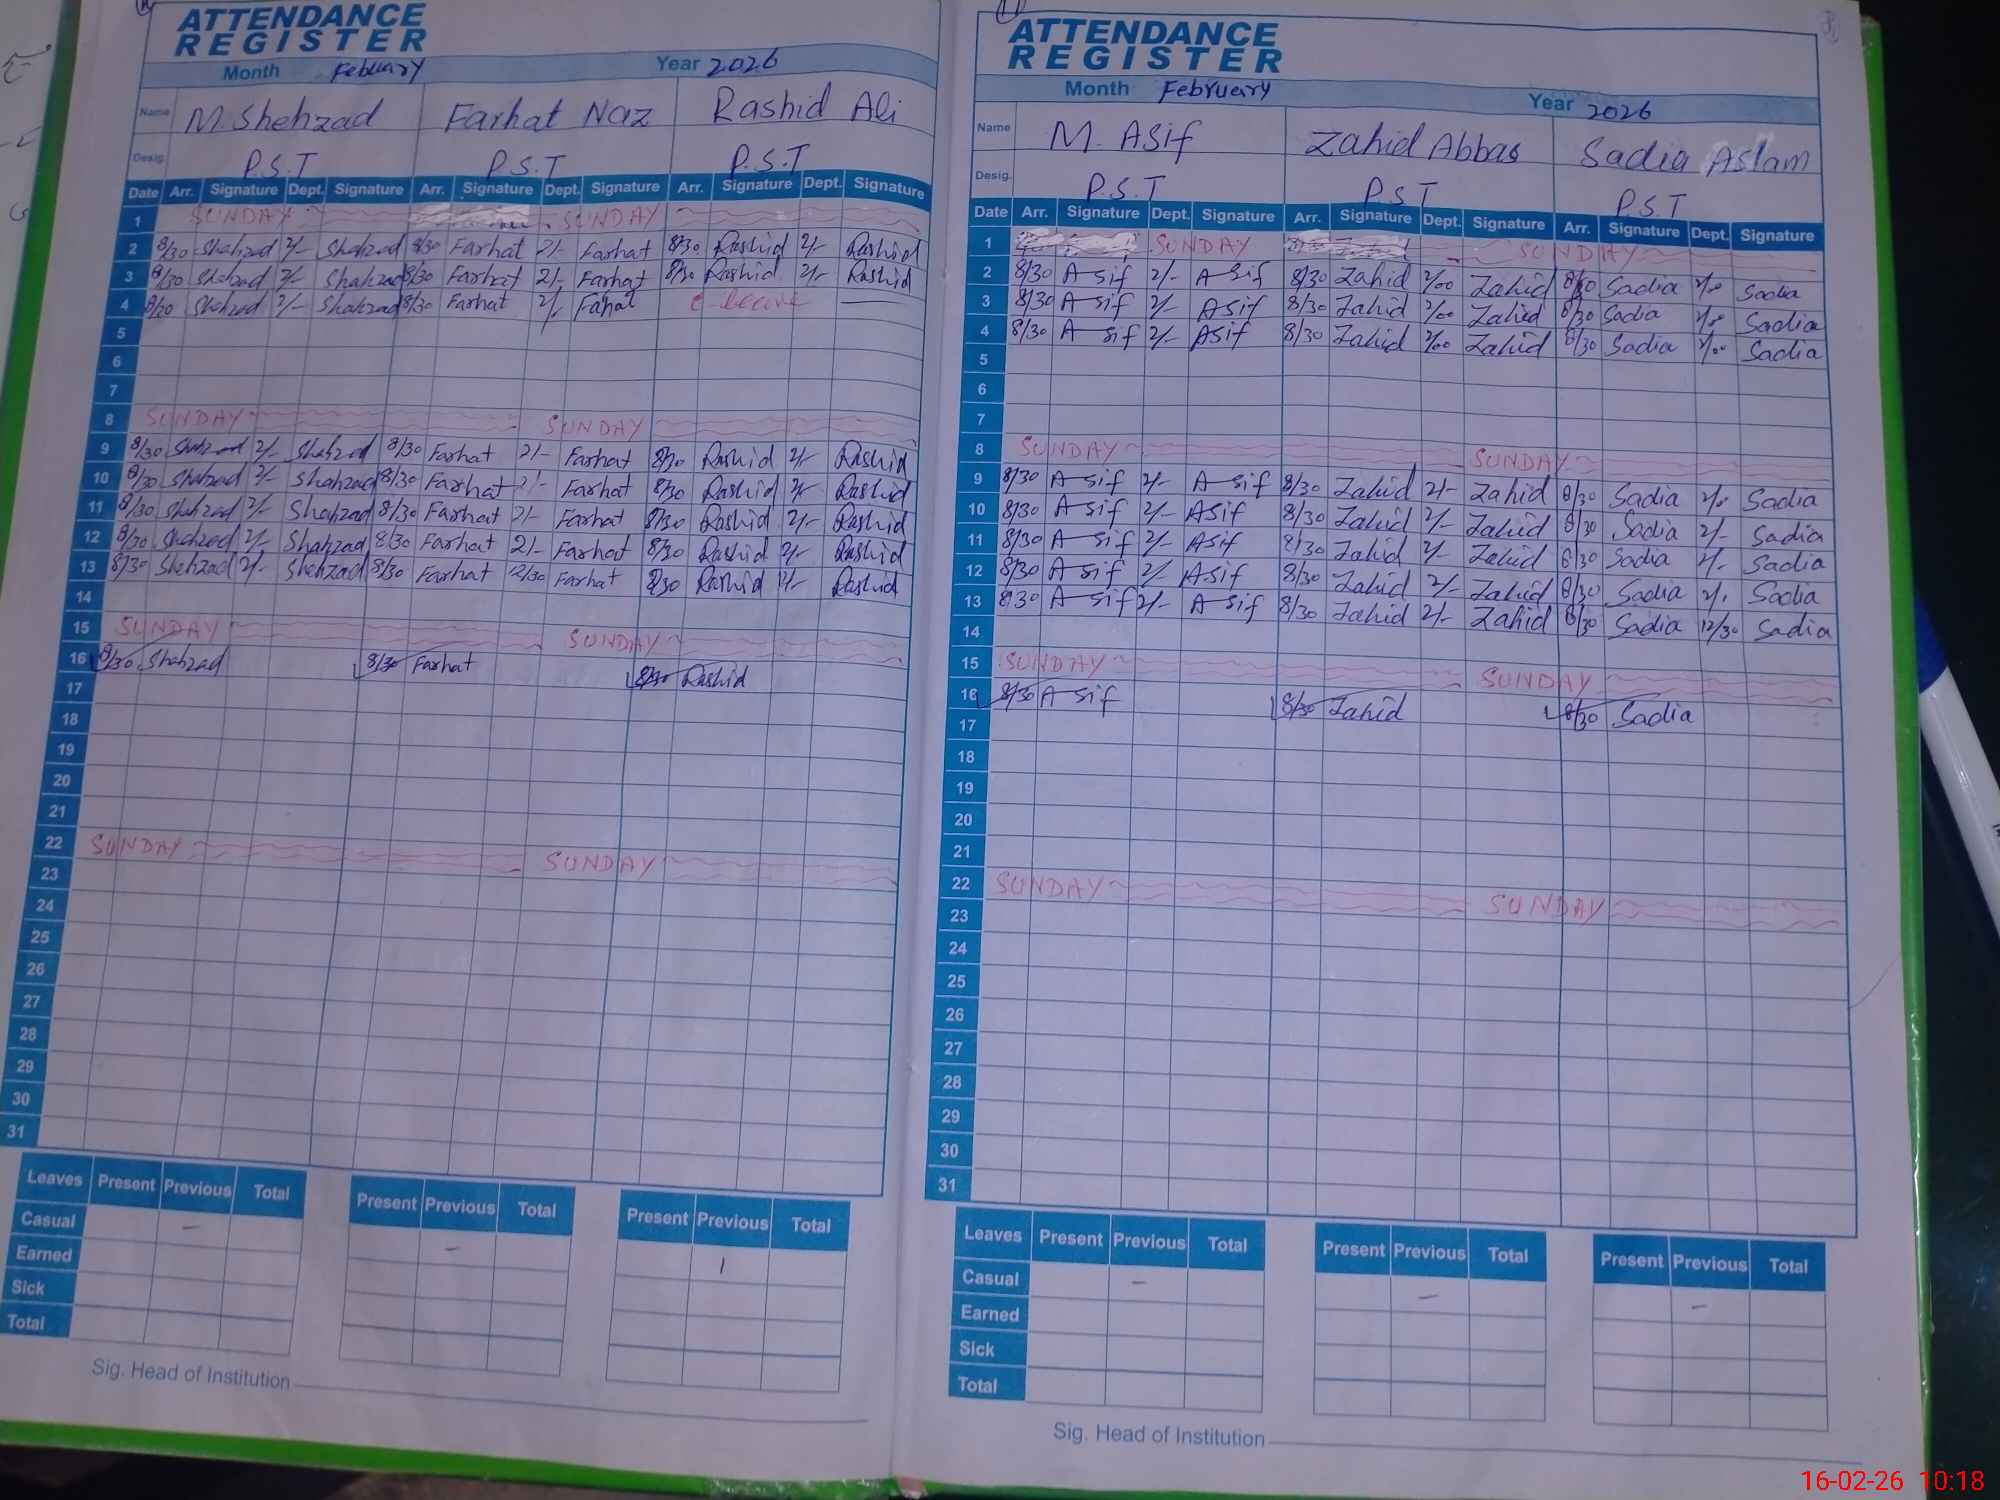 ATTENDANCE
REGISTER
Month Febuary Year 2026
Name M. Shehzad Farhat Naz Rashid Ali
Desig. P.S.T P.S.T P.S.T
Date Arr. Signature Dept. Signature Arr. Signature Dept. Signature Arr. Signature Dept. Signature
1 SUNDAY SUNDAY
2 8/30 Shahzad 2/- Shahzad 8/30 Farhat 2/- Farhat 8/30 Rashid 2/- Rashid
3 8/30 Shahzad 2/- Shahzad 8/30 Farhat 2/- Farhat 8/30 Rashid 2/- Rashid
4 8/30 Shehzad 2/- Shahzad 8/30 Farhat 2/- Fahat C leave
5
6
7
8 SUNDAY SUNDAY
9 8/30 Shahzad 2/- Shahzad 8/30 Farhat 2/- Farhat 8/30 Rashid 2/- Rashid
10 8/30 Shahzad 2/- Shahzad 8/30 Farhat 2/- Farhat 8/30 Rashid 2/- Rashid
11 8/30 Shahzad 2/- Shahzad 8/30 Farhat 2/- Farhat 8/30 Rashid 2/- Rashid
12 8/30 Shehzad 2/- Shahzad 8/30 Farhat 2/- Farhat 8/30 Rashid 2/- Rashid
13 8/30 Shehzad 2/- Shehzad 8/30 Farhat 12/30 Farhat 8/30 Rashid Rashid
14
15 SUNDAY SUNDAY
16 8/30 Shahzad 8/30 Farhat 8/30 Rashid
17
18
19
20
21
22 SUNDAY SUNDAY
23
24
25
26
27
28
29
30
31
Leaves Present Previous Total Present Previous Total Present Previous Total
Casual - - 1
Earned
Sick
Total
Sig. Head of Institution
ATTENDANCE
REGISTER
Month February Year 2026
Name M. Asif Zahid Abbas Sadia Aslam
Desig. P.S.T P.S.T P.S.T
Date Arr. Signature Dept. Signature Arr. Signature Dept. Signature Arr. Signature Dept. Signature
1 SUNDAY SUNDAY
2 8/30 Asif 2/- Asif 8/30 Zahid 2/00 Zahid 8/30 Sadia Sadia
3 8/30 Asif 2/- Asif 8/30 Zahid 2/00 Zahid 8/30 Sadia Sadia
4 8/30 Asif 2/- Asif 8/30 Zahid 2/00 Zahid 8/30 Sadia 2/00 Sadia
5
6
7
8 SUNDAY SUNDAY
9 8/30 Asif 2/- Asif 8/30 Zahid 2/- Zahid 8/30 Sadia Sadia
10 8/30 Asif 2/- Asif 8/30 Zahid 2/- Zahid 8/30 Sadia 2/- Sadia
11 8/30 Asif 2/- Asif 8/30 Zahid 2/- Zahid 8/30 Sadia 2/- Sadia
12 8/30 Asif 2/- Asif 8/30 Zahid 2/- Zahid 8/30 Sadia Sadia
13 8/30 Asif 2/- Asif 8/30 Zahid 2/- Zahid 8/30 Sadia 12/30 Sadia
14
15 SUNDAY SUNDAY
16 8/30 Asif 8/30 Zahid 8/30 Sadia
17
18
19
20
21
22 SUNDAY SUNDAY
23
24
25
26
27
28
29
30
31
Leaves Present Previous Total Present Previous Total Present Previous Total
Casual - - -
Earned
Sick
Total
Sig. Head of Institution
16-02-26 10:18